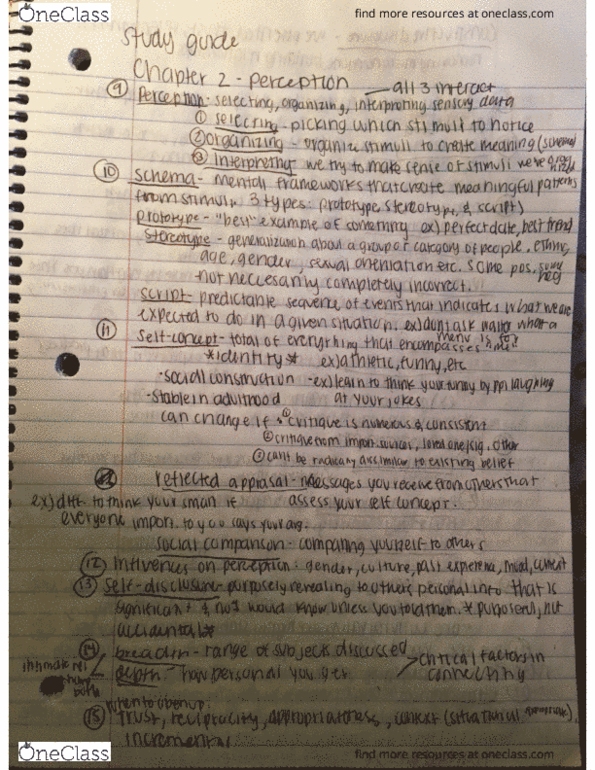 OneClass
find more resources at oneclass.com
Study guide
Chapter 2 - perception
all 3 interact
9 Perception - selecting, organizing, interpreting sensory data
1 selecting - picking which stimuli to notice
2 organizing - organize stimuli to create meaning (schema)
3 Interpreting we try to make sense of stimuli we've
10 Schema - mental frameworks that create meaningful patterns
from stimuli. 3 types: prototype, stereotype, & script)
prototype - "best" example of something ex) perfect date, best friend
Stereotype - generalization about a group or category of people. ethnic,
age, gender, sexual orientation etc. some pos. some neg
not necessarily completely incorrect.
script - predictable sequence of events that indicates what we are
expected to do in a given situation. ex) dont ask waiter what a menu is for
11 Self-concept - total of everything that encompasses
*identity* ex) athletic, funny, etc
- social construction - ex) learn to think your funny by ppl laughing
at your jokes
- Stable in adulthood
can change if 1 critique is numerous & consistent
2 critique from import. sources, loved one/sig. other
3 can't be radically dissimilar to existing belief
reflected appraisal - messages you receive from others that
assess your self concept.
ex) diff. to think your smart if
everyone import. to you says your
social comparison - comparing yourself to others
12 Influences on perception: gender, culture, past experience, mood, context
13 Self-disclosure - purposely revealing to others personal info that is
significant & not would know unless you told them. * purposeful, not
accidental *
14 breadth - range of subjects discussed
depth - how personal you get
critical factors in
connectivity
intimate rel
have
both
when to open up
15 Trust, reciprocity, appropriatness, context (situational
incremental
OneClass
find more resources at oneclass.com